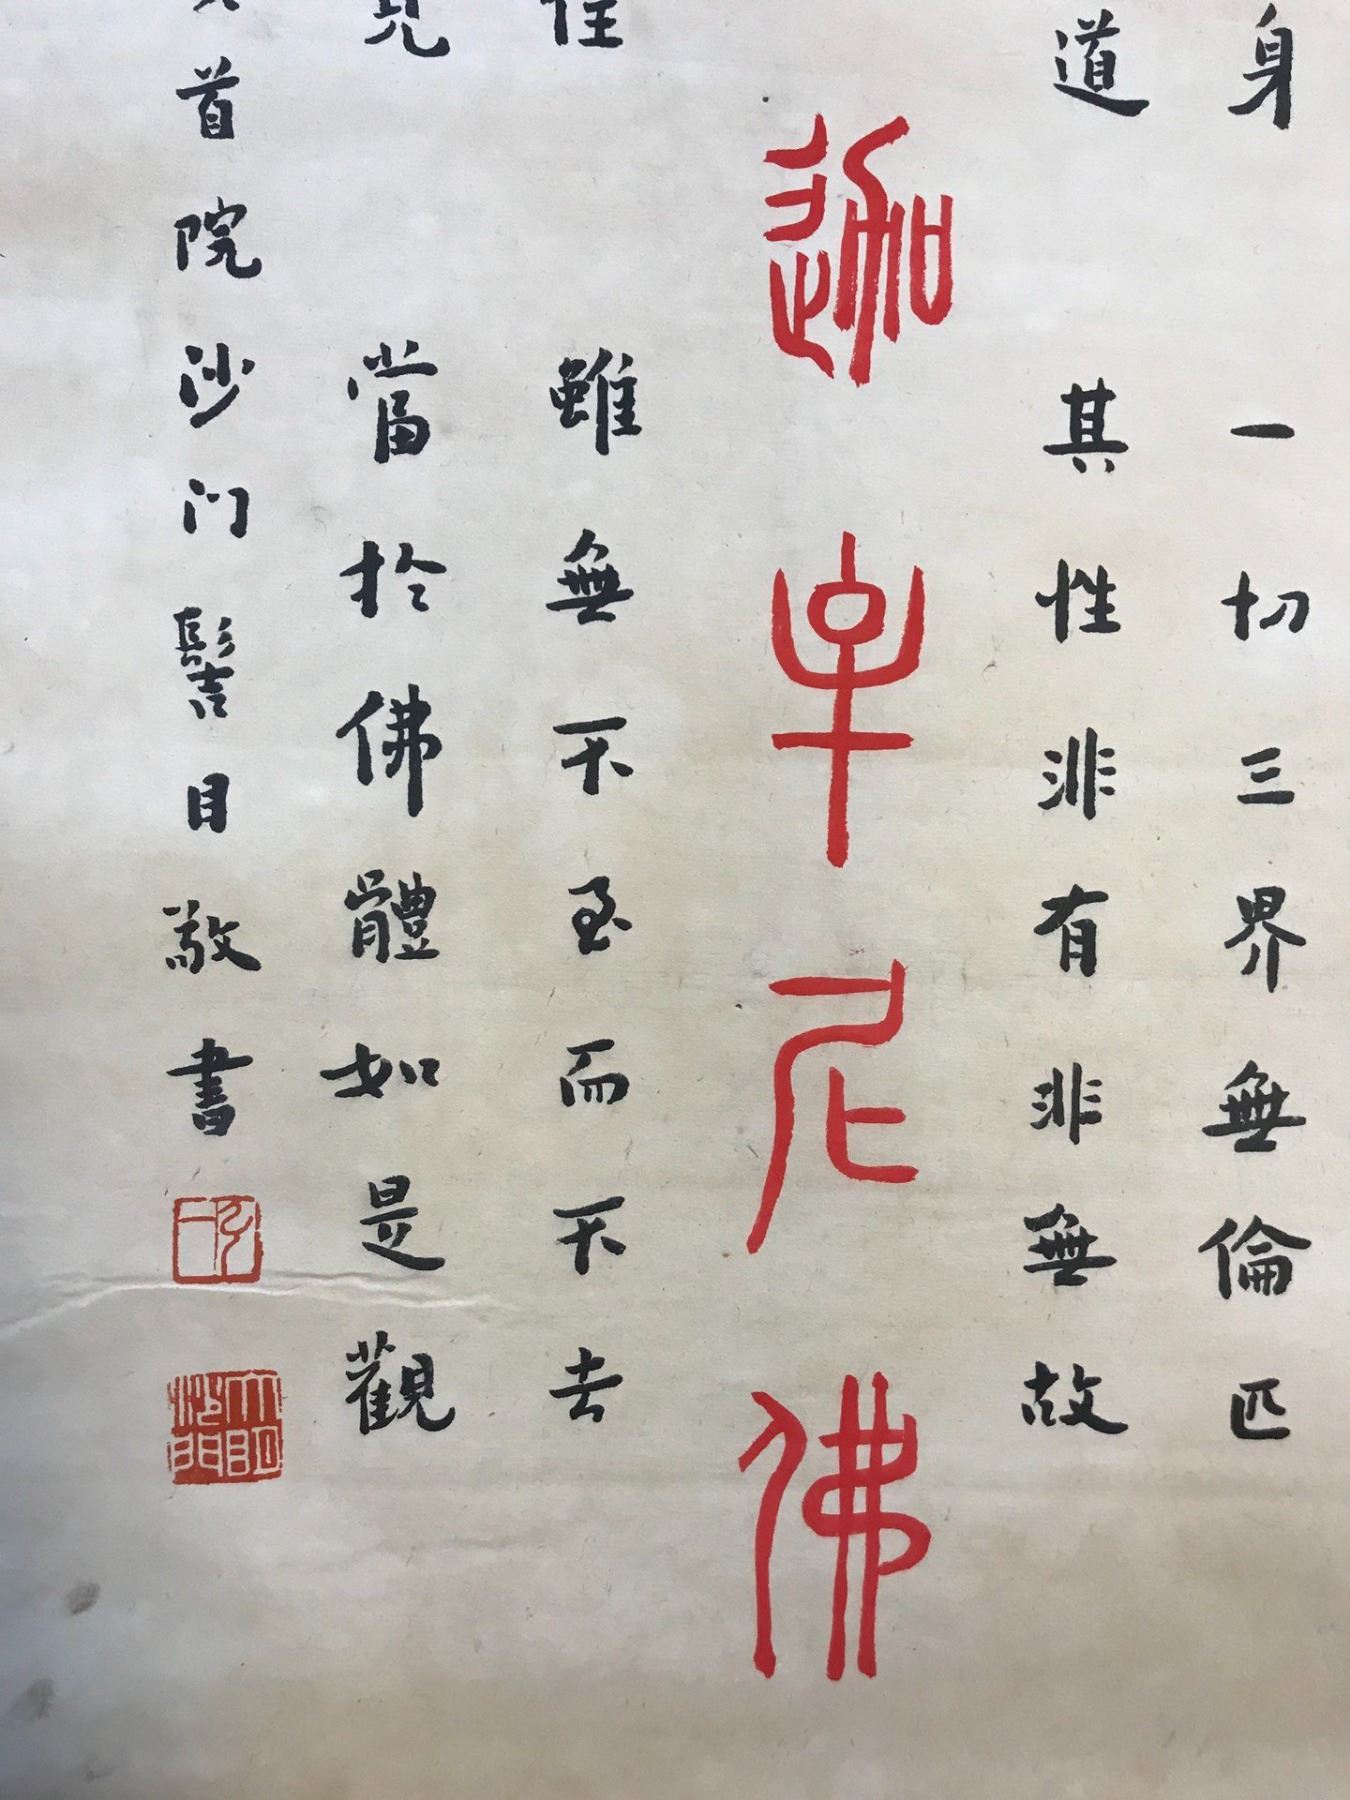 身 一切三界無倫匹
道 其性非有非無故
迦牟尼佛
住 雖無不至而不去
見 當於佛體如是觀
首院沙门髻目敬書
沙門